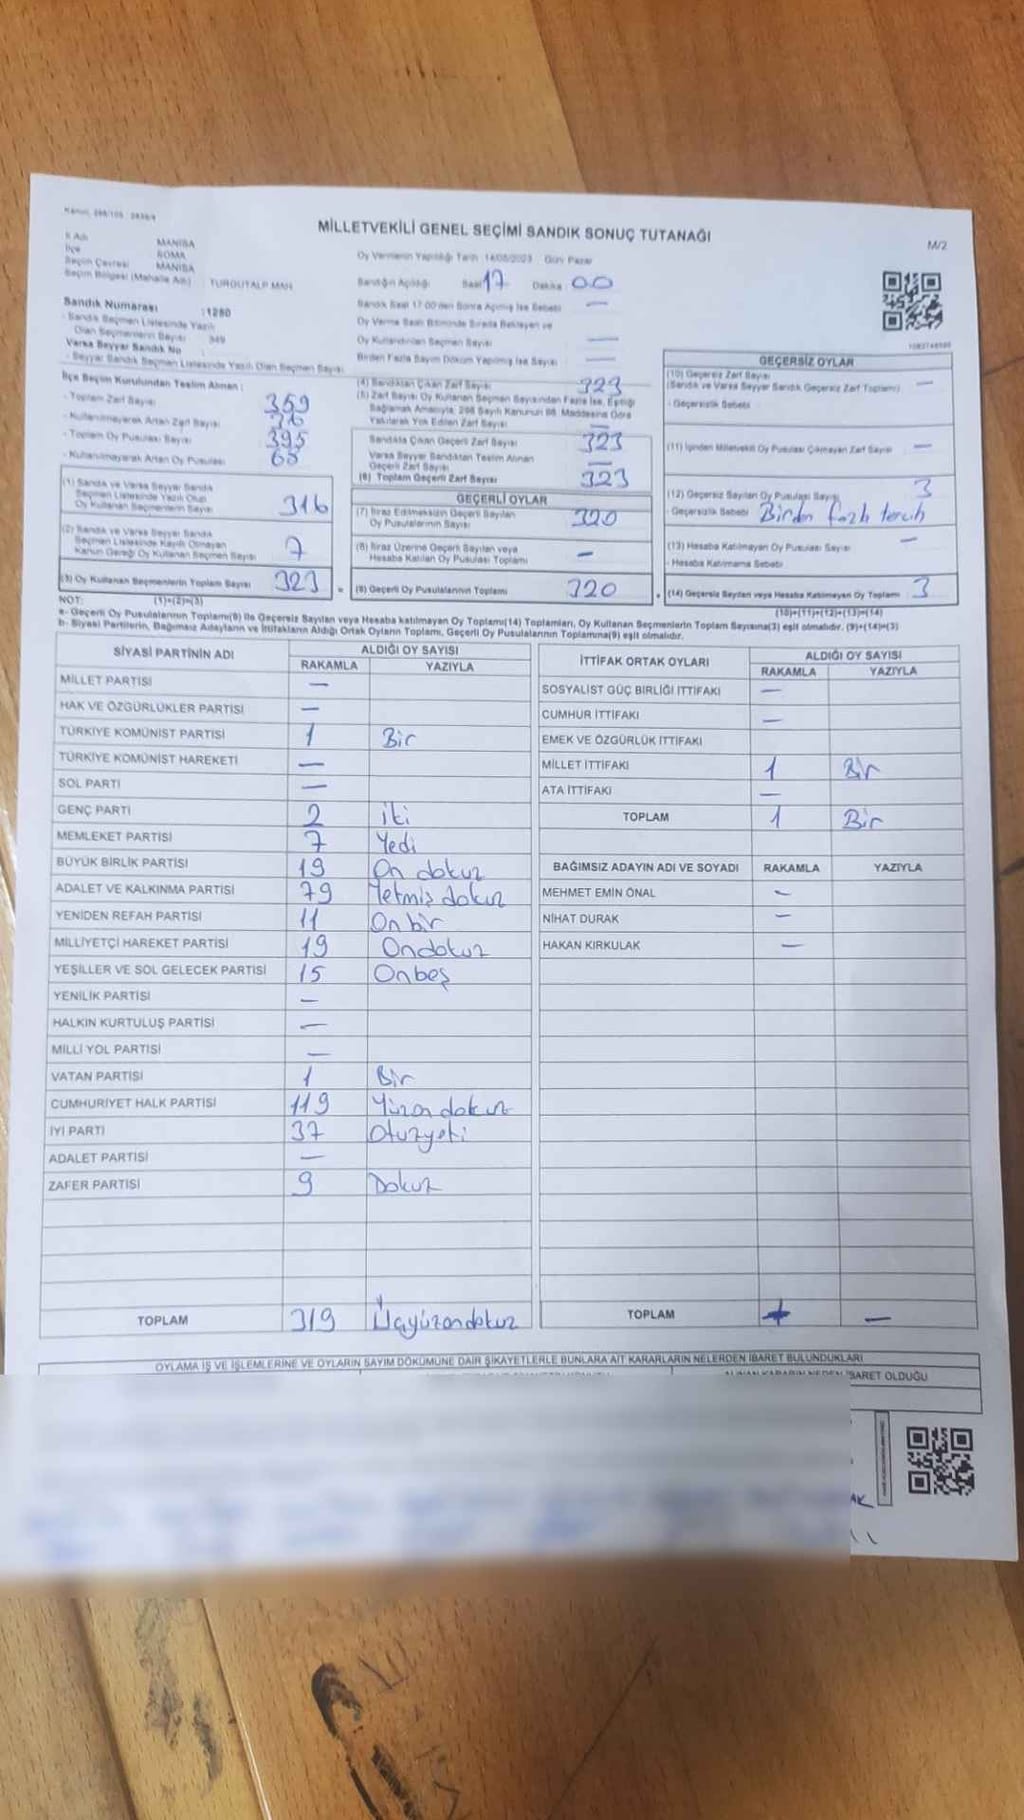 MİLLETVEKİLİ GENEL SEÇİMİ SANDIK SONUÇ TUTANAĞI
M/2
İl Adı MANİSA
İlçe SOMA
Seçim Çevresi MANİSA
Seçim Bölgesi (Mahalle Adı) : TURGUTALP MAH
Oy Vermenin Yapıldığı Tarih 14/05/2023 Günü Pazar
Sandığın Açıldığı Saat 17 Dakika 00
Sandık Saat 17:00'den Sonra Açılmış İse Sebebi —
Oy Verme Saati Bitiminde Sırada Bekleyen ve
Oy Kullandırılan Seçmen Sayısı —
Birden Fazla Sayım Döküm Yapılmış İse Sayısı —
Sandık Numarası : 1280
- Sandık Seçmen Listesinde Yazılı
Olan Seçmenlerin Sayısı 349
Varsa Seyyar Sandık No
- Seyyar Sandık Seçmen Listesinde Yazılı Olan Seçmen Sayısı
İlçe Seçim Kurulundan Teslim Alınan :
- Toplam Zarf Sayısı 359
- Kullanılmayarak Artan Zarf Sayısı 36
- Toplam Oy Pusulası Sayısı 395
- Kullanılmayarak Artan Oy Pusulası
(1) Sandık ve Varsa Seyyar Sandık
Seçmen Listesinde Yazılı Olup
Oy Kullanan Seçmenlerin Sayısı 316
(2) Sandık ve Varsa Seyyar Sandık
Seçmen Listesinde Kayıtlı Olmayan
Kanun Gereği Oy Kullanan Seçmen Sayısı 7
(3) Oy Kullanan Seçmenlerin Toplam Sayısı 323 =
(1)+(2)=(3)
(4) Sandıktan Çıkan Zarf Sayısı 323
(5) Zarf Sayısı Oy Kullanan Seçmen Sayısından Fazla İse, Eşitliği
Sağlamak Amacıyla, 298 Sayılı Kanunun 98. Maddesine Göre
Yakılarak Yok Edilen Zarf Sayısı —
Sandıkta Çıkan Geçerli Zarf Sayısı 323
Varsa Seyyar Sandıktan Teslim Alınan
Geçerli Zarf Sayısı —
(6) Toplam Geçerli Zarf Sayısı 323
GEÇERLİ OYLAR
(7) İtiraz Edilmeksizin Geçerli Sayılan
Oy Pusulalarının Sayısı 320
(8) İtiraz Üzerine Geçerli Sayılan veya
Hesaba Katılan Oy Pusulası Toplamı —
(9) Geçerli Oy Pusulalarının Toplamı 320 +
GEÇERSİZ OYLAR
(10) Geçersiz Zarf Sayısı
(Sandık ve Varsa Seyyar Sandık Geçersiz Zarf Toplamı) —
- Geçersizlik Sebebi
(11) İçinden Milletvekili Oy Pusulası Çıkmayan Zarf Sayısı —
(12) Geçersiz Sayılan Oy Pusulası Sayısı 3
- Geçersizlik Sebebi Birden fazla tercih
(13) Hesaba Katılmayan Oy Pusulası Sayısı —
- Hesaba Katılmama Sebebi
(14) Geçersiz Sayılan veya Hesaba Katılmayan Oy Toplamı 3
(10)+(11)+(12)+(13)=(14)
NOT:
a- Geçerli Oy Pusulalarının Toplamı(9) ile Geçersiz Sayılan veya Hesaba katılmayan Oy Toplamı(14) Toplamları, Oy Kullanan Seçmenlerin Toplam Sayısına(3) eşit olmalıdır. (9)+(14)=(3)
b- Siyasi Partilerin, Bağımsız Adayların ve İttifakların Aldığı Ortak Oyların Toplamı, Geçerli Oy Pusulalarının Toplamına(9) eşit olmalıdır.
SİYASİ PARTİNİN ADI ALDIĞI OY SAYISI
RAKAMLA YAZIYLA
MİLLET PARTİSİ —
HAK VE ÖZGÜRLÜKLER PARTİSİ —
TÜRKİYE KOMÜNİST PARTİSİ 1 Bir
TÜRKİYE KOMÜNİST HAREKETİ —
SOL PARTİ —
GENÇ PARTİ 2 iki
MEMLEKET PARTİSİ 7 Yedi
BÜYÜK BİRLİK PARTİSİ 19 On dokuz
ADALET VE KALKINMA PARTİSİ 79 Yetmiş dokuz
YENİDEN REFAH PARTİSİ 11 On bir
MİLLİYETÇİ HAREKET PARTİSİ 19 Ondokuz
YEŞİLLER VE SOL GELECEK PARTİSİ 15 Onbeş
YENİLİK PARTİSİ —
HALKIN KURTULUŞ PARTİSİ —
MİLLİ YOL PARTİSİ —
VATAN PARTİSİ 1 Bir
CUMHURİYET HALK PARTİSİ 119 Yüzon dokuz
İYİ PARTİ 37 Otuzyeti
ADALET PARTİSİ —
ZAFER PARTİSİ 9 Dokuz
TOPLAM 319 Üçyüzondokuz
İTTİFAK ORTAK OYLARI ALDIĞI OY SAYISI
RAKAMLA YAZIYLA
SOSYALİST GÜÇ BİRLİĞİ İTTİFAKI —
CUMHUR İTTİFAKI —
EMEK VE ÖZGÜRLÜK İTTİFAKI
MİLLET İTTİFAKI 1 Bir
ATA İTTİFAKI —
TOPLAM 1 Bir
BAĞIMSIZ ADAYIN ADI VE SOYADI RAKAMLA YAZIYLA
MEHMET EMİN ÖNAL —
NİHAT DURAK —
HAKAN KIRKULAK —
TOPLAM —
OYLAMA İŞ VE İŞLEMLERİNE VE OYLARIN SAYIM DÖKÜMÜNE DAİR ŞİKAYETLERLE BUNLARA AİT KARARLARIN NELERDEN İBARET BULUNDUKLARI
İBARET OLDUĞU